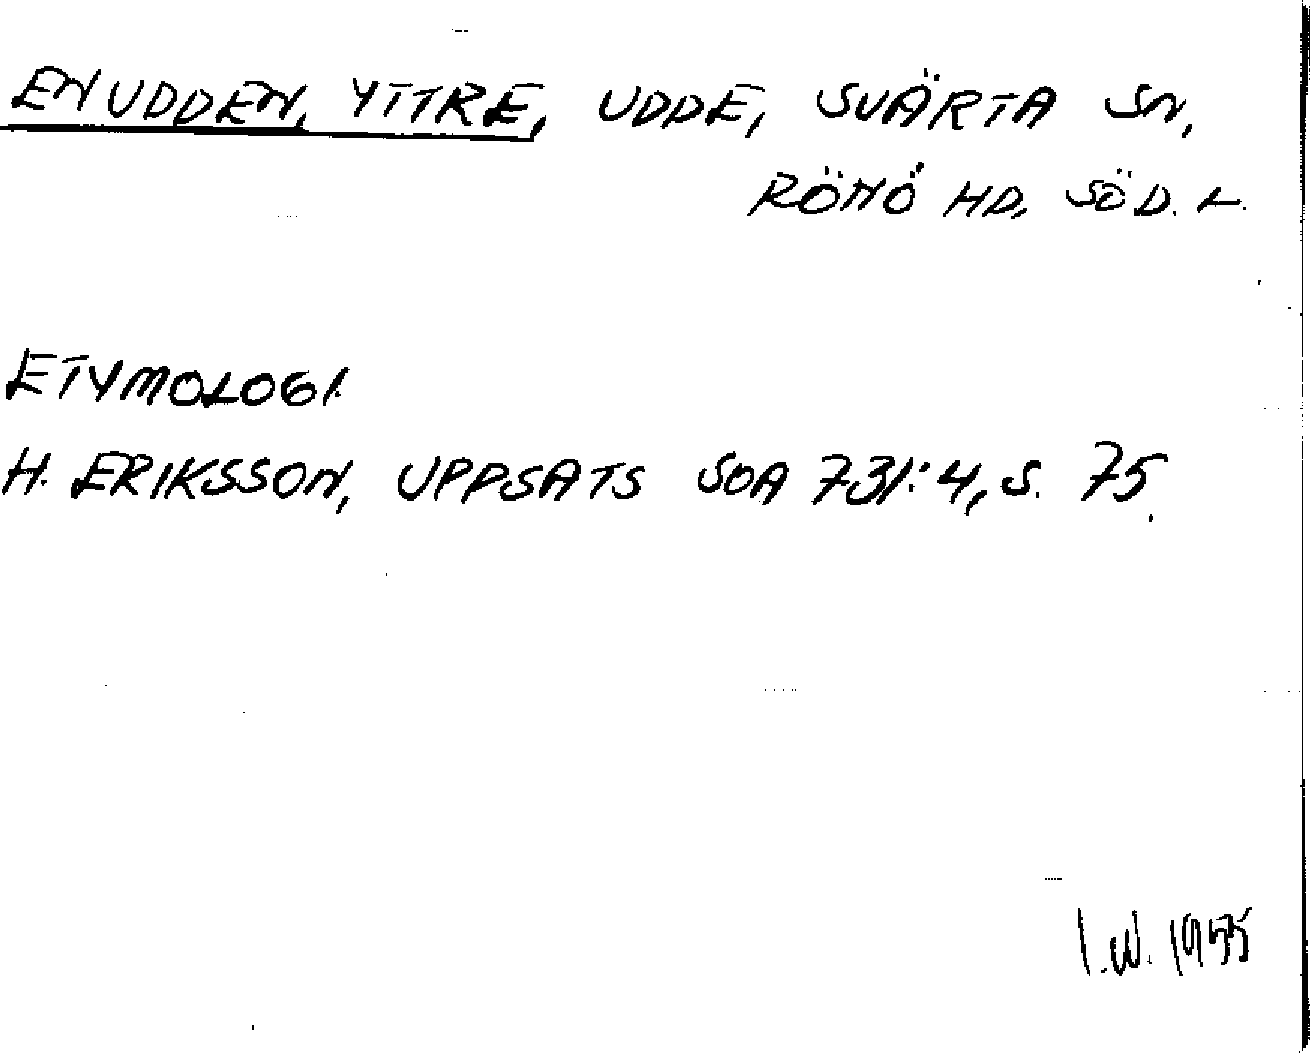 ENUDDEN, YTTRE, UDDE, SVÄRTA SN,
RÖNÖ HD, SÖD. L.
ETYMOLOGI.
H. ERIKSSON, UPPSATS SOA 731:4, S. 75.
I.W. 1955